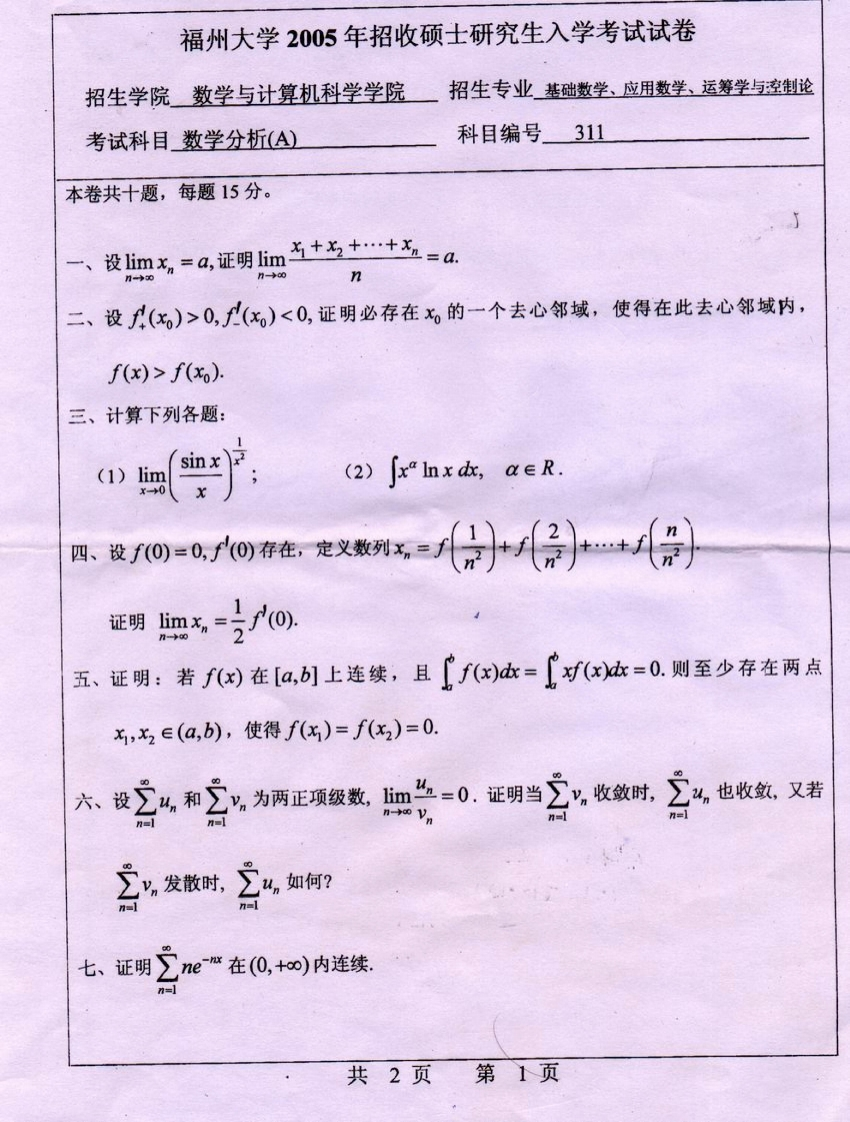 福州大学 2005 年招收硕士研究生入学考试试卷
招生学院 数学与计算机科学学院 招生专业 基础数学、应用数学、运筹学与控制论
考试科目 数学分析(A) 科目编号 311
本卷共十题，每题 15 分。
一、设 lim_{n→∞} x_n = a, 证明 lim_{n→∞} (x_1 + x_2 + ⋯ + x_n)/n = a.
二、设 f'_+(x_0) > 0, f'_-(x_0) < 0, 证明必存在 x_0 的一个去心邻域，使得在此去心邻域内，
f(x) > f(x_0).
三、计算下列各题：
（1） lim_{x→0} (sin x / x)^{1/x^2}； （2） ∫x^α ln x dx, α ∈ R.
四、设 f(0) = 0, f'(0) 存在，定义数列 x_n = f(1/n^2) + f(2/n^2) + ⋯ + f(n/n^2).
证明 lim_{n→∞} x_n = 1/2 f'(0).
五、证明：若 f(x) 在 [a,b] 上连续，且 ∫_a^b f(x)dx = ∫_a^b xf(x)dx = 0. 则至少存在两点
x_1, x_2 ∈ (a,b)，使得 f(x_1) = f(x_2) = 0.
六、设 ∑_{n=1}^∞ u_n 和 ∑_{n=1}^∞ v_n 为两正项级数, lim_{n→∞} u_n/v_n = 0. 证明当 ∑_{n=1}^∞ v_n 收敛时, ∑_{n=1}^∞ u_n 也收敛, 又若
∑_{n=1}^∞ v_n 发散时, ∑_{n=1}^∞ u_n 如何?
七、证明 ∑_{n=1}^∞ ne^{-nx} 在 (0,+∞) 内连续.
共 2 页 第 1 页